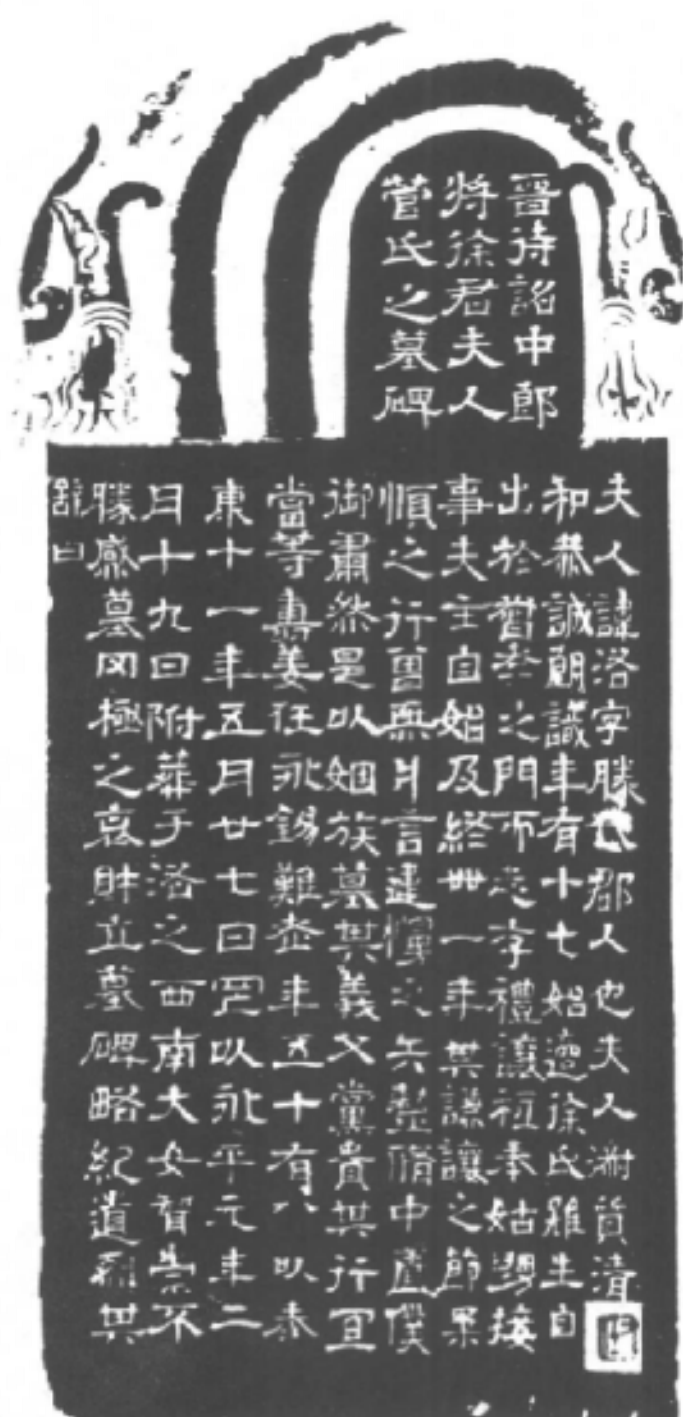 晉待詔中郎
將徐君夫人
管氏之墓碑
夫人諱洛字勝代郡人也夫人淑質清
和恭誠朗識年有十七始適徐氏雖生自
出於督孝之門而志存禮讓祗奉姑舅接
事夫主自始及終卅一年其謙讓之節柔
順之行曾無片言違慢之矢整脩中匱僕
御肅然是以姻族慕其義父黨貴其行宜
當等壽姜任永錫難老年五十有八以泰
康十一年五月廿七日以永平元年二
月十九日附葬于洛之西南大女智崇不
勝感慕罔極之哀財立墓碑略紀遺烈其
辭曰